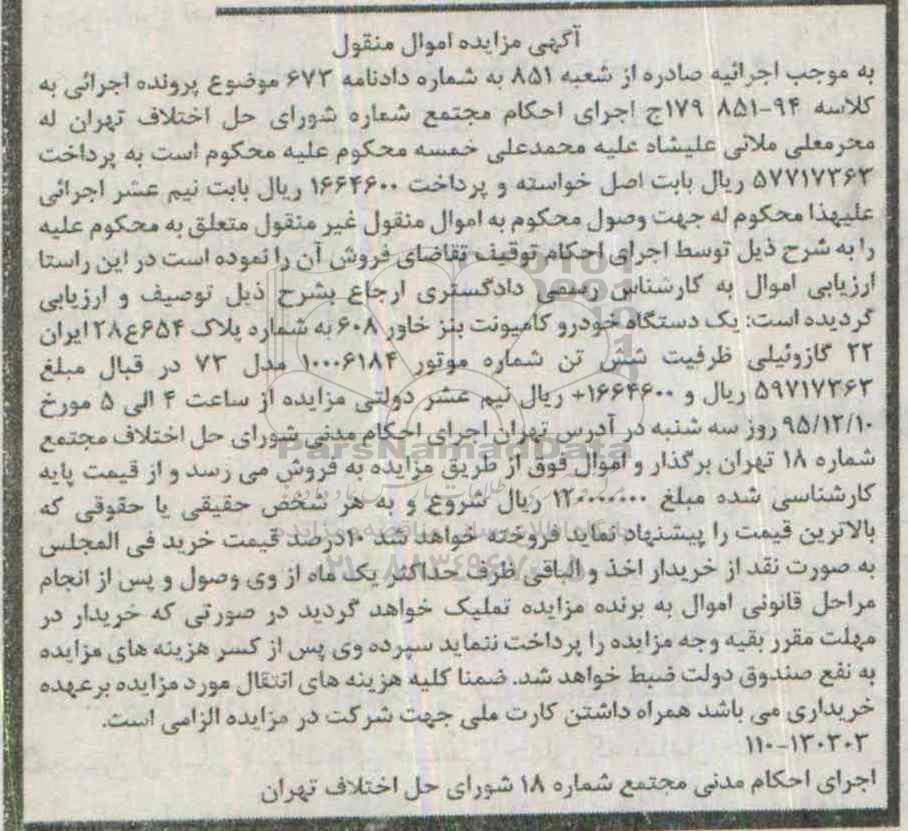 آگهی مزایده اموال منقول
به موجب اجرائیه صادره از شعبه ۸۵۱ به شماره دادنامه ۶۷۳ موضوع پرونده اجرائی به
کلاسه ۹۴-۸۵۱ ۱۷۹ج اجرای احکام مجتمع شماره شورای حل اختلاف تهران له
محرمعلی ملائی علیشاه علیه محمدعلی خمسه محکوم علیه محکوم است به پرداخت
۵۷۷۱۷۳۶۳ ریال بابت اصل خواسته و پرداخت ۱۶۶۴۶۰۰ ریال بابت نیم عشر اجرائی
علیهذا محکوم له جهت وصول محکوم به اموال منقول غیر منقول متعلق به محکوم علیه
را به شرح ذیل توسط اجرای احکام توقیف تقاضای فروش آن را نموده است در این راستا
ارزیابی اموال به کارشناس رسمی دادگستری ارجاع بشرح ذیل توصیف و ارزیابی
گردیده است: یک دستگاه خودرو کامیونت بنز خاور ۶۰۸ به شماره پلاک ۶۵۴ع۲۸ ایران
۲۲ گازوئیلی ظرفیت شش تن شماره موتور ۱۰۰۰۶۱۸۴ مدل ۷۳ در قبال مبلغ
۵۹۷۱۷۳۶۳ ریال و ۱۶۶۴۶۰۰+ ریال نیم عشر دولتی مزایده از ساعت ۴ الی ۵ مورخ
۹۵/۱۲/۱۰ روز سه شنبه در آدرس تهران اجرای احکام مدنی شورای حل اختلاف مجتمع
شماره ۱۸ تهران برگذار و اموال فوق از طریق مزایده به فروش می رسد و از قیمت پایه
کارشناسی شده مبلغ ۱۲۰۰۰۰۰۰۰ ریال شروع و به هر شخص حقیقی یا حقوقی که
بالاترین قیمت را پیشنهاد نماید فروخته خواهد شد ۱۰درصد قیمت خرید فی المجلس
به صورت نقد از خریدار اخذ و الباقی ظرف حداکثر یک ماه از وی وصول و پس از انجام
مراحل قانونی اموال به برنده مزایده تملیک خواهد گردید در صورتی که خریدار در
مهلت مقرر بقیه وجه مزایده را پرداخت ننماید سپرده وی پس از کسر هزینه های مزایده
به نفع صندوق دولت ضبط خواهد شد. ضمنا کلیه هزینه های انتقال مورد مزایده برعهده
خریداری می باشد همراه داشتن کارت ملی جهت شرکت در مزایده الزامی است.
۱۱۰-۱۳۰۳۰۳
اجرای احکام مدنی مجتمع شماره ۱۸ شورای حل اختلاف تهران
ParsNamadData